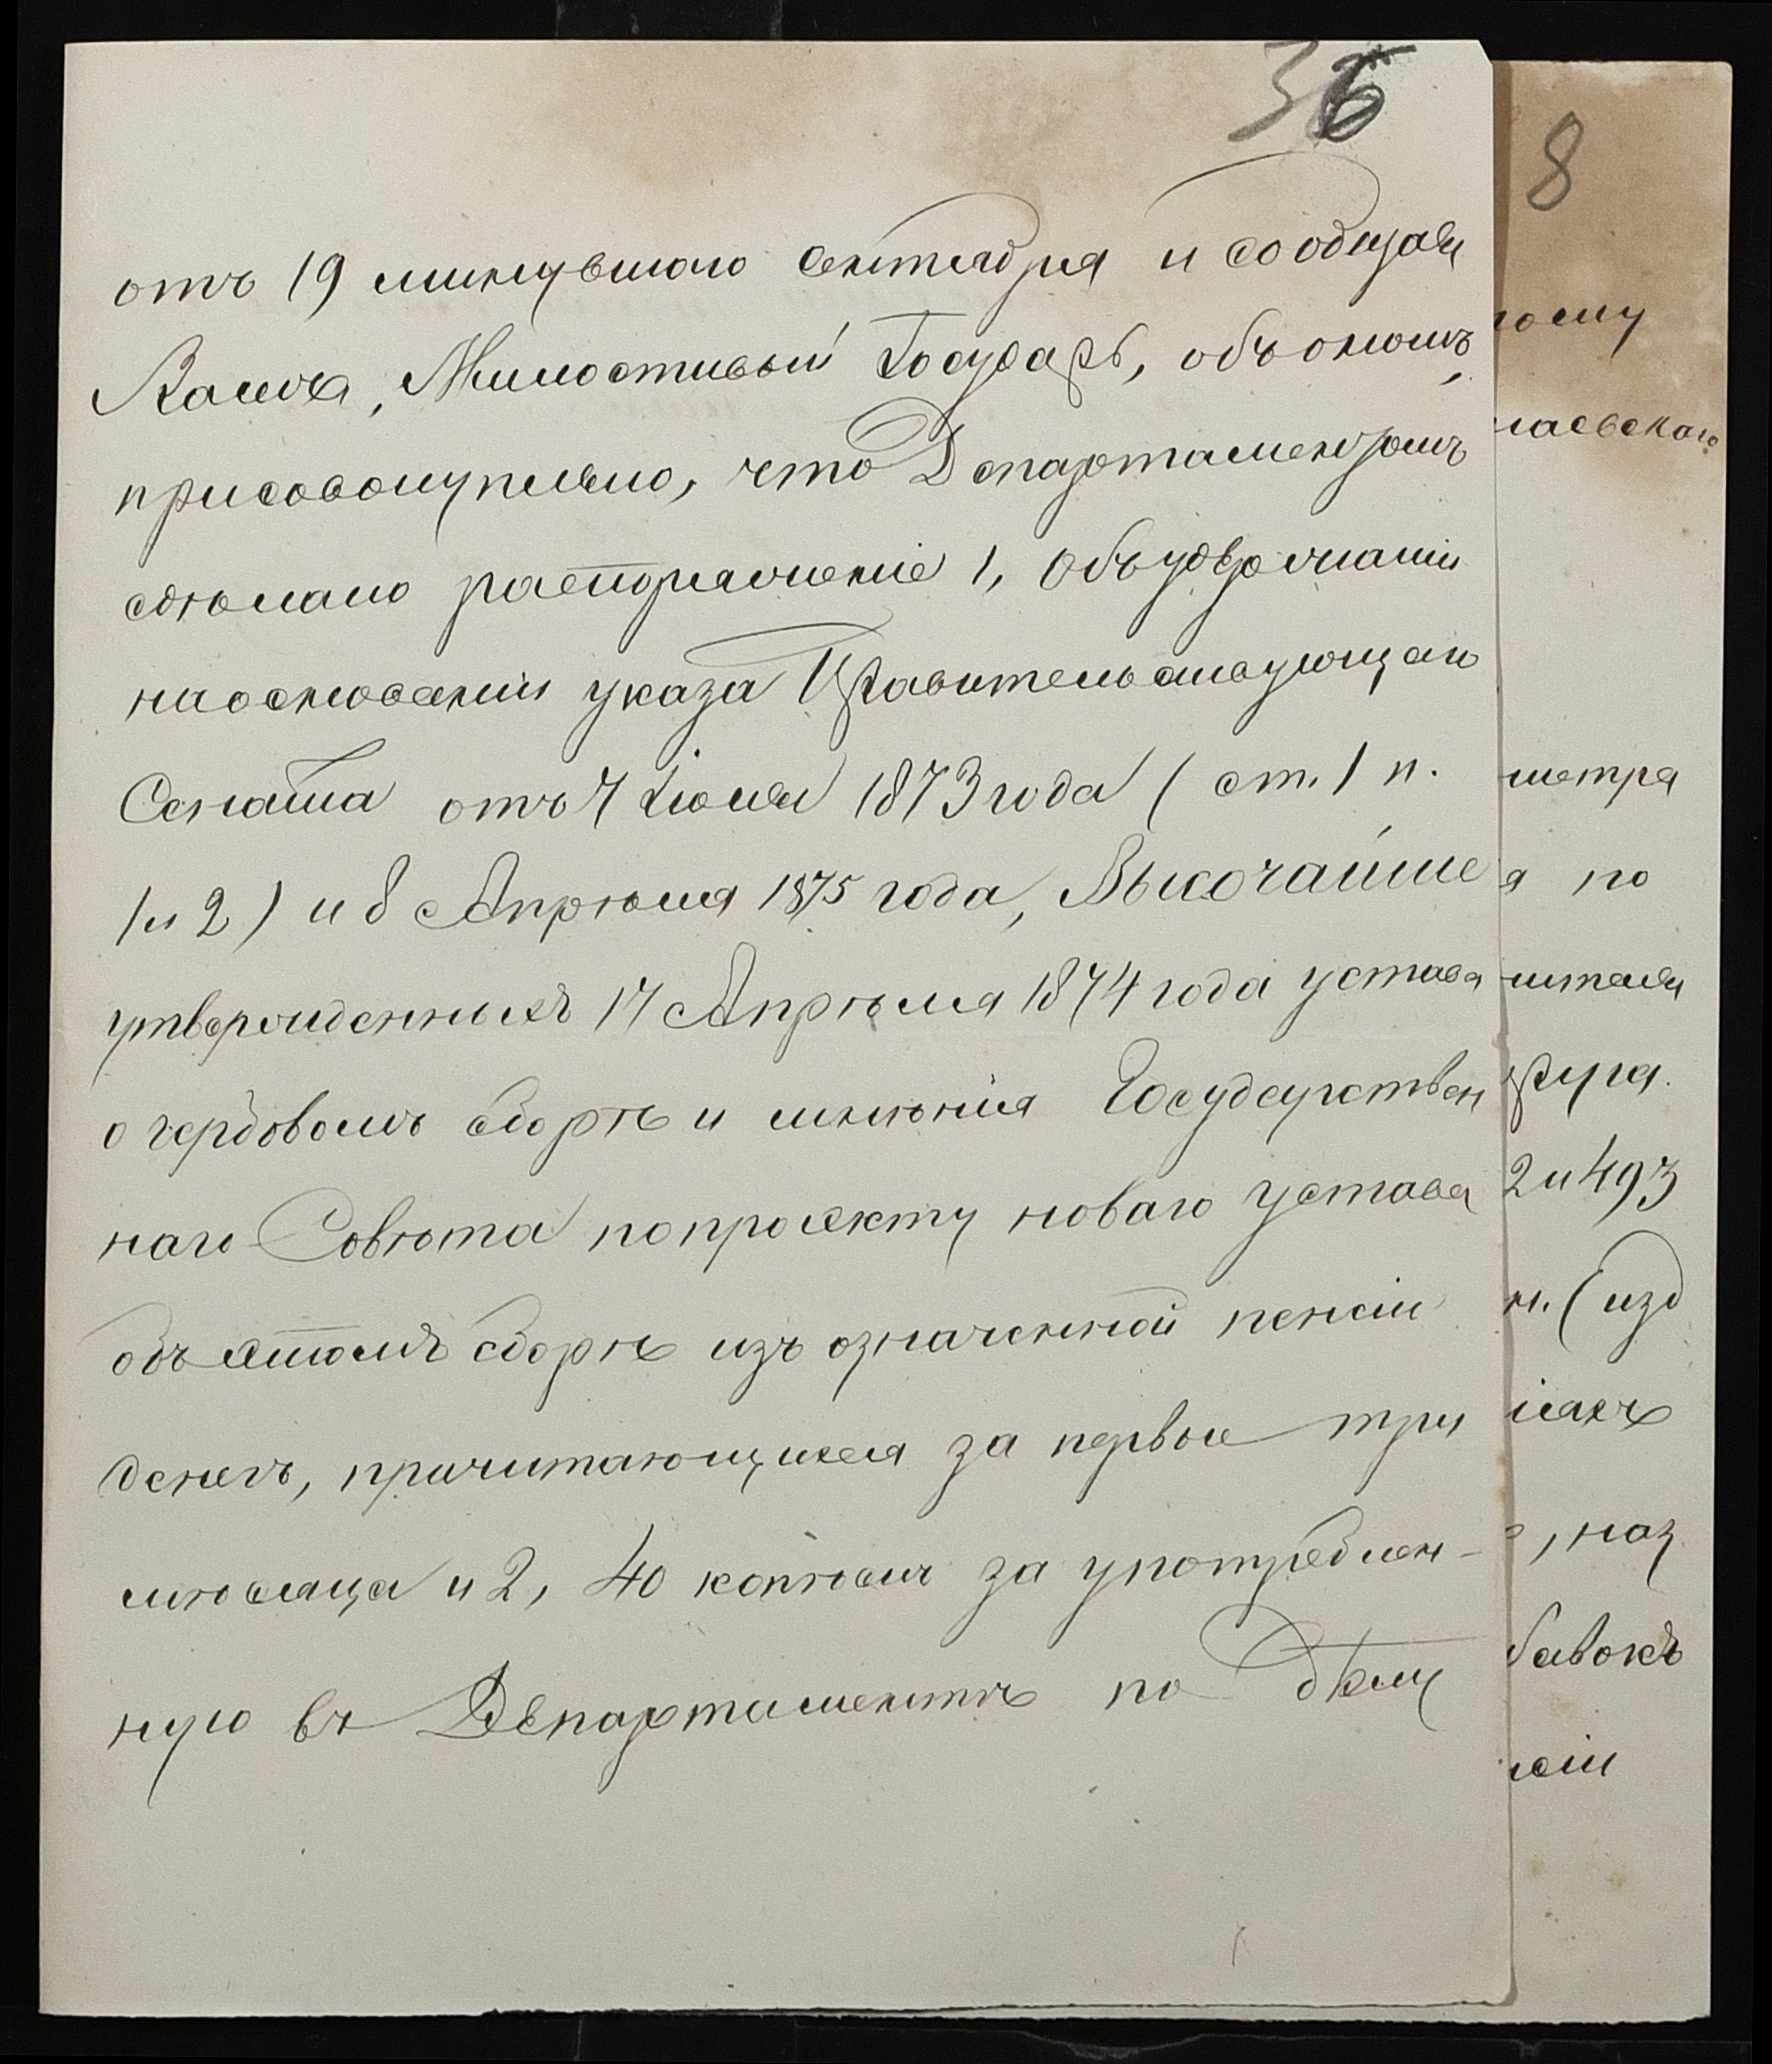 36
8
отъ 19 минувшаго Сентября и сообщая
Вамъ, Милостивый Государь, объ ономъ,
присовокупляю, что Департаментомъ
сдѣлано распоряженіе 1, Объ удержаніи
на основаніи указа Правительствующаго
Сената отъ 7 Іюля 1873 года (ст. 1 п.
1 и 2) и 8 Апрѣля 1875 года, Высочайше
утвержденныхъ 17 Апрѣля 1874 года устава
о гербовомъ сборѣ и мнѣнія Государствен
наго Совѣта по проекту новаго устава
объ этомъ сборѣ изъ означенной пенсіи
денегъ, причитающихся за первые три
мѣсяца и 2, 40 копѣекъ за употреблен-
ную въ Департаментѣ по дѣлу
ому
лаевскаго
метра
я по
ителя
2 и 493
н. (изд
іяхъ
, наз
бавокъ
сіи